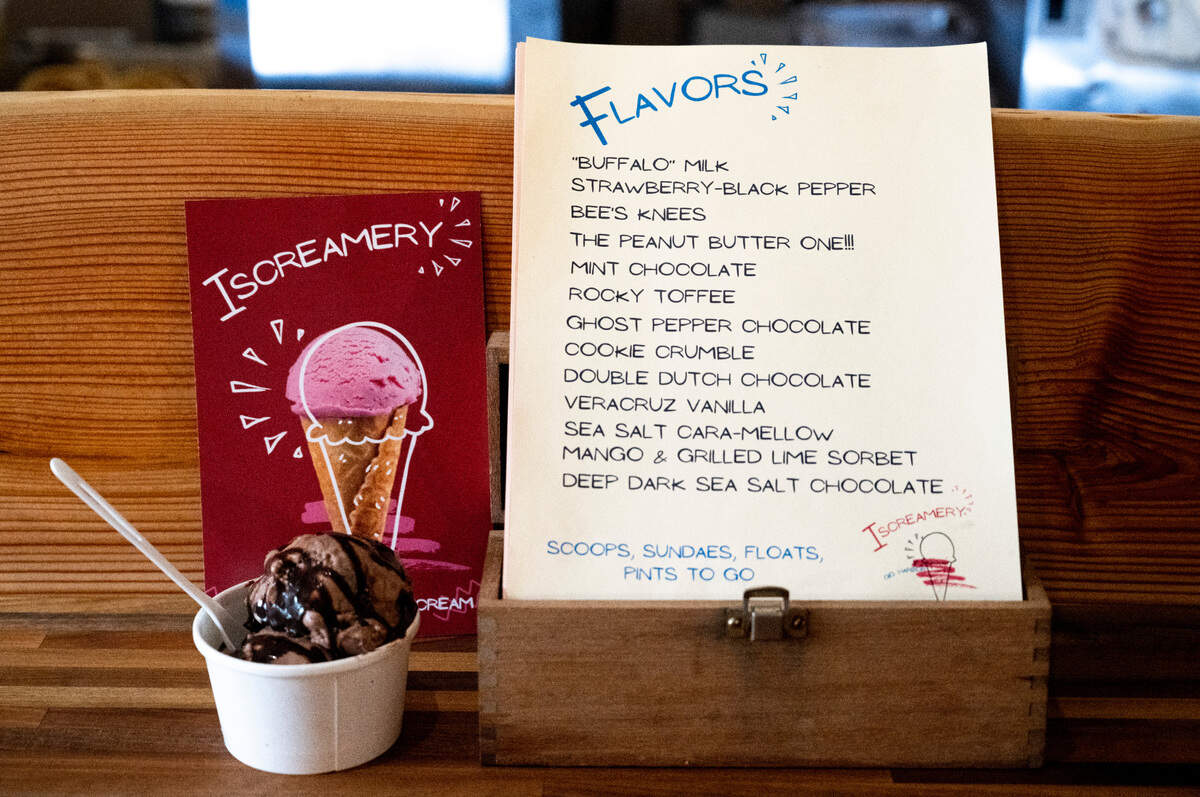 FLAVORS
"BUFFALO" MILK
STRAWBERRY-BLACK PEPPER
BEE'S KNEES
THE PEANUT BUTTER ONE!!!
MINT CHOCOLATE
ROCKY TOFFEE
GHOST PEPPER CHOCOLATE
COOKIE CRUMBLE
DOUBLE DUTCH CHOCOLATE
VERACRUZ VANILLA
SEA SALT CARA-MELLOW
MANGO & GRILLED LIME SORBET
DEEP DARK SEA SALT CHOCOLATE
SCOOPS, SUNDAES, FLOATS,
PINTS TO GO
ISCREAMERY
ISCREAMERY
CREAM